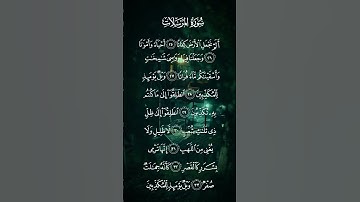 سُورَةُ المُرْسَلَات
أَلَمْ نَجْعَلِ الْأَرْضَ كِفَاتًا ٢٥ أَحْيَاءً وَأَمْوَاتًا
٢٦ وَجَعَلْنَا فِيهَا رَوَاسِيَ شَامِخَاتٍ
وَأَسْقَيْنَاكُم مَّاءً فُرَاتًا ٢٧ وَيْلٌ يَوْمَئِذٍ
لِّلْمُكَذِّبِينَ ٢٨ انطَلِقُوا إِلَىٰ مَا كُنتُم
بِهِ تُكَذِّبُونَ ٢٩ انطَلِقُوا إِلَىٰ ظِلٍّ
ذِي ثَلَاثِ شُعَبٍ ٣٠ لَّا ظَلِيلٍ وَلَا
يُغْنِي مِنَ اللَّهَبِ ٣١ إِنَّهَا تَرْمِي
بِشَرَرٍ كَالْقَصْرِ ٣٢ كَأَنَّهُ جِمَالَتٌ
صُفْرٌ ٣٣ وَيْلٌ يَوْمَئِذٍ لِّلْمُكَذِّبِينَ